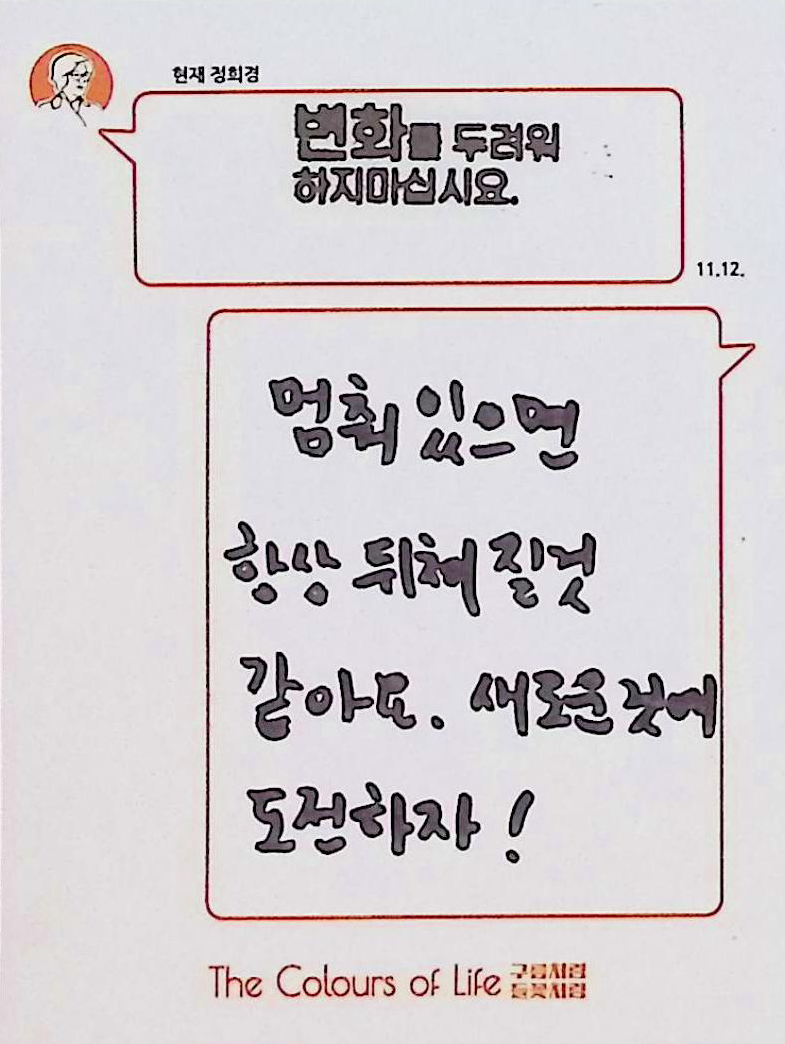 현재 정희경
변화를 두려워
하지마십시요.
11.12.
멈춰 있으면
항상 뒤쳐 질것
같아요. 새로운것에
도전하자!
The Colours of Life 구름처럼
들꽃처럼